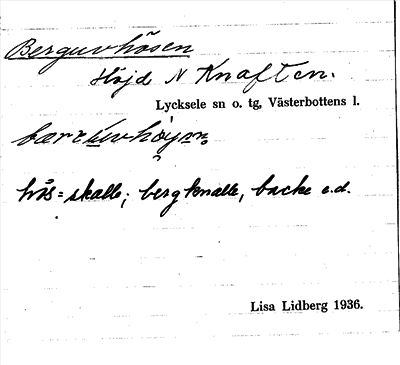 Berguvhösen
Höjd N Knaften.
Lycksele sn o. tg, Västerbottens l.
hös = skalle; bergknalle, backe e.d.
Lisa Lidberg 1936.